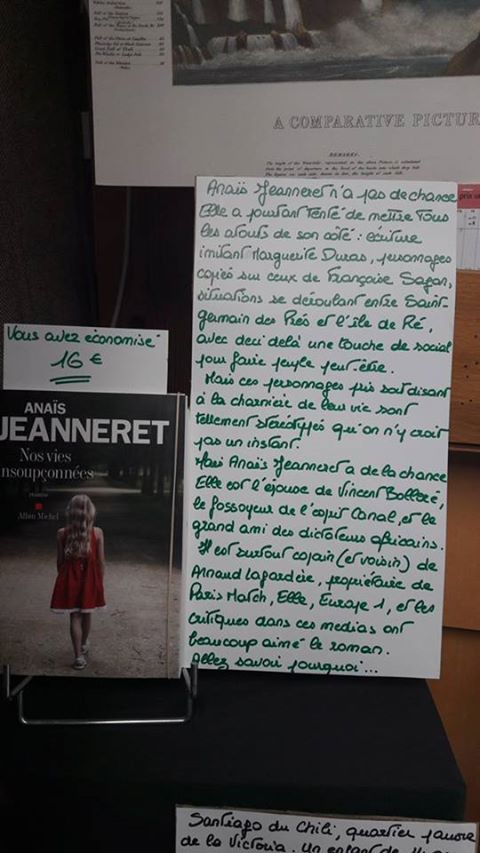 A COMPARATIVE PICTUR
REMARKS.
Anaïs Jeanneret n'a pas de chance
Elle a pourtant tenté de mettre tous
les atouts de son côté : écriture
imitant Marguerite Duras, personnages
copiés sur ceux de Françoise Sagan,
situations se déroulant entre Saint
germain des Prés et l'île de Ré,
avec deci delà une touche de social
pour faire peuple peut-être.
Mais ces personnages pris soit disant
à la charnière de leur vie sont
tellement stéréotypés qu'on n'y croit
pas un instant.
Mais Anaïs Jeanneret a de la chance
Elle est l'épouse de Vincent Bolloré,
le fossoyeur de l'esprit Canal, et le
grand ami des dictateurs africains.
Il est surtout copain (et voisin) de
Arnaud Lagardère, propriétaire de
Paris Match, Elle, Europe 1, et les
critiques dans ces medias ont
beaucoup aimé le roman.
Allez savoir pourquoi...
Vous avez économisé
16 €
ANAÏS
JEANNERET
Nos vies
insoupçonnées
roman
Albin Michel
Santiago du Chili, quartier pauvre
de la Victoria. Un enfant de